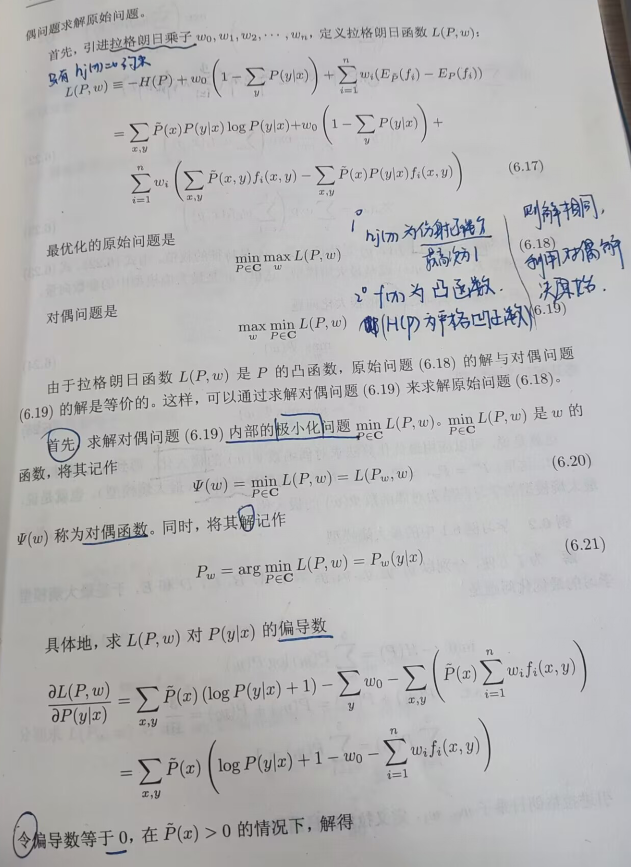 偶问题求解原始问题。
首先，引进拉格朗日乘子 w₀, w₁, w₂, ⋯, wₙ，定义拉格朗日函数 L(P, w)：
只有 hj(x)=0 约束
L(P, w) ≡ −H(P) + w₀ (1 − ∑_y P(y|x)) + ∑_{i=1}^{n} wᵢ(E_P̃(fᵢ) − E_P(fᵢ))
= ∑_{x,y} P̃(x)P(y|x) log P(y|x) + w₀ (1 − ∑_y P(y|x)) +
∑_{i=1}^{n} wᵢ (∑_{x,y} P̃(x, y)fᵢ(x, y) − ∑_{x,y} P̃(x)P(y|x)fᵢ(x, y)) (6.17)
最优化的原始问题是
min_{P∈C} max_w L(P, w) (6.18)
对偶问题是
max_w min_{P∈C} L(P, w) (6.19)
1° hj(x) 为仿射函数
最高次为1
2° f(x) 为凸函数.
(H(P) 为严格凹函数)
则解相同,
利用对偶解
决原始.
由于拉格朗日函数 L(P, w) 是 P 的凸函数，原始问题 (6.18) 的解与对偶问题
(6.19) 的解是等价的。这样，可以通过求解对偶问题 (6.19) 来求解原始问题 (6.18)。
首先，求解对偶问题 (6.19) 内部的极小化问题 min_{P∈C} L(P, w)。min_{P∈C} L(P, w) 是 w 的
函数，将其记作
Ψ(w) = min_{P∈C} L(P, w) = L(P_w, w) (6.20)
Ψ(w) 称为对偶函数。同时，将其解记作
P_w = arg min_{P∈C} L(P, w) = P_w(y|x) (6.21)
具体地，求 L(P, w) 对 P(y|x) 的偏导数
∂L(P, w)/∂P(y|x) = ∑_{x,y} P̃(x) (log P(y|x) + 1) − ∑_y w₀ − ∑_{x,y} (P̃(x) ∑_{i=1}^{n} wᵢfᵢ(x, y))
= ∑_{x,y} P̃(x) (log P(y|x) + 1 − w₀ − ∑_{i=1}^{n} wᵢfᵢ(x, y))
令偏导数等于 0，在 P̃(x) > 0 的情况下，解得